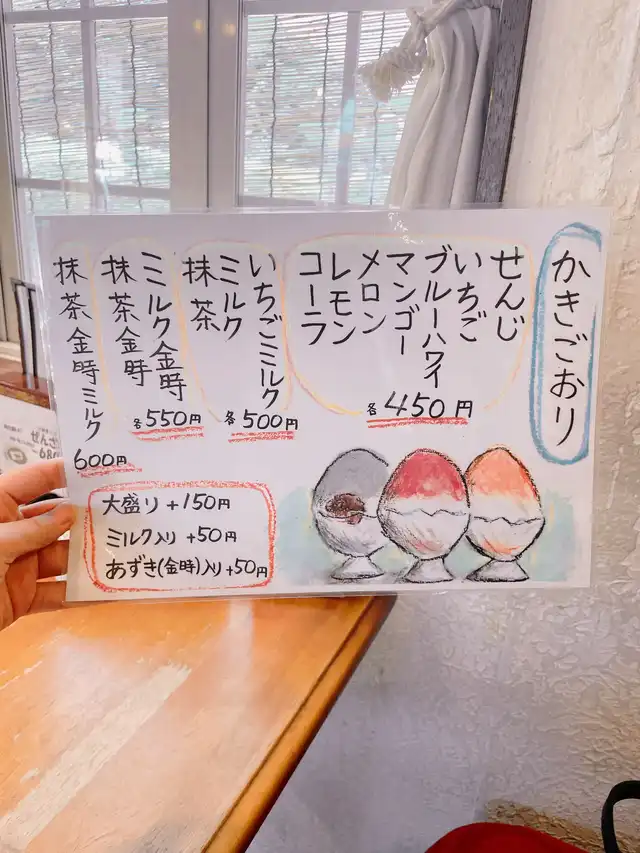 かきごおり
せんじ
いちご
ブルーハワイ
マンゴー
メロン
レモン
コーラ
各450円
いちごミルク
ミルク
抹茶
各500円
ミルク金時
抹茶金時
各550円
抹茶金時ミルク
600円
大盛り+150円
ミルク入り+50円
あずき(金時)入り+50円